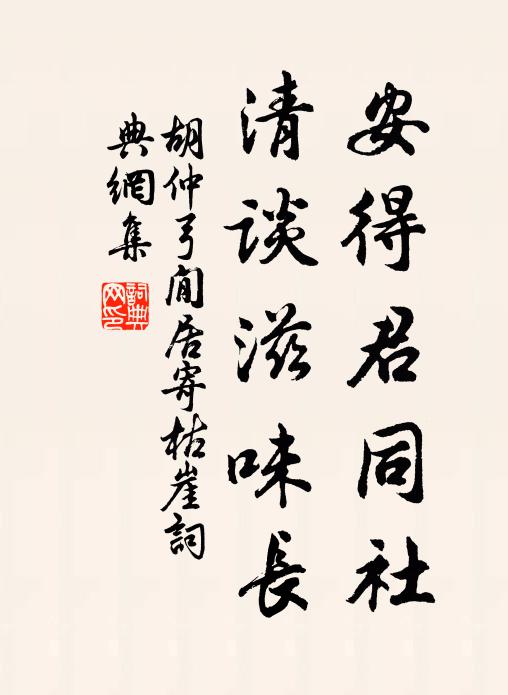 安得君同社
清談滋味長
胡仲弓閒居寄枯崖詞
典網集
詞典網印